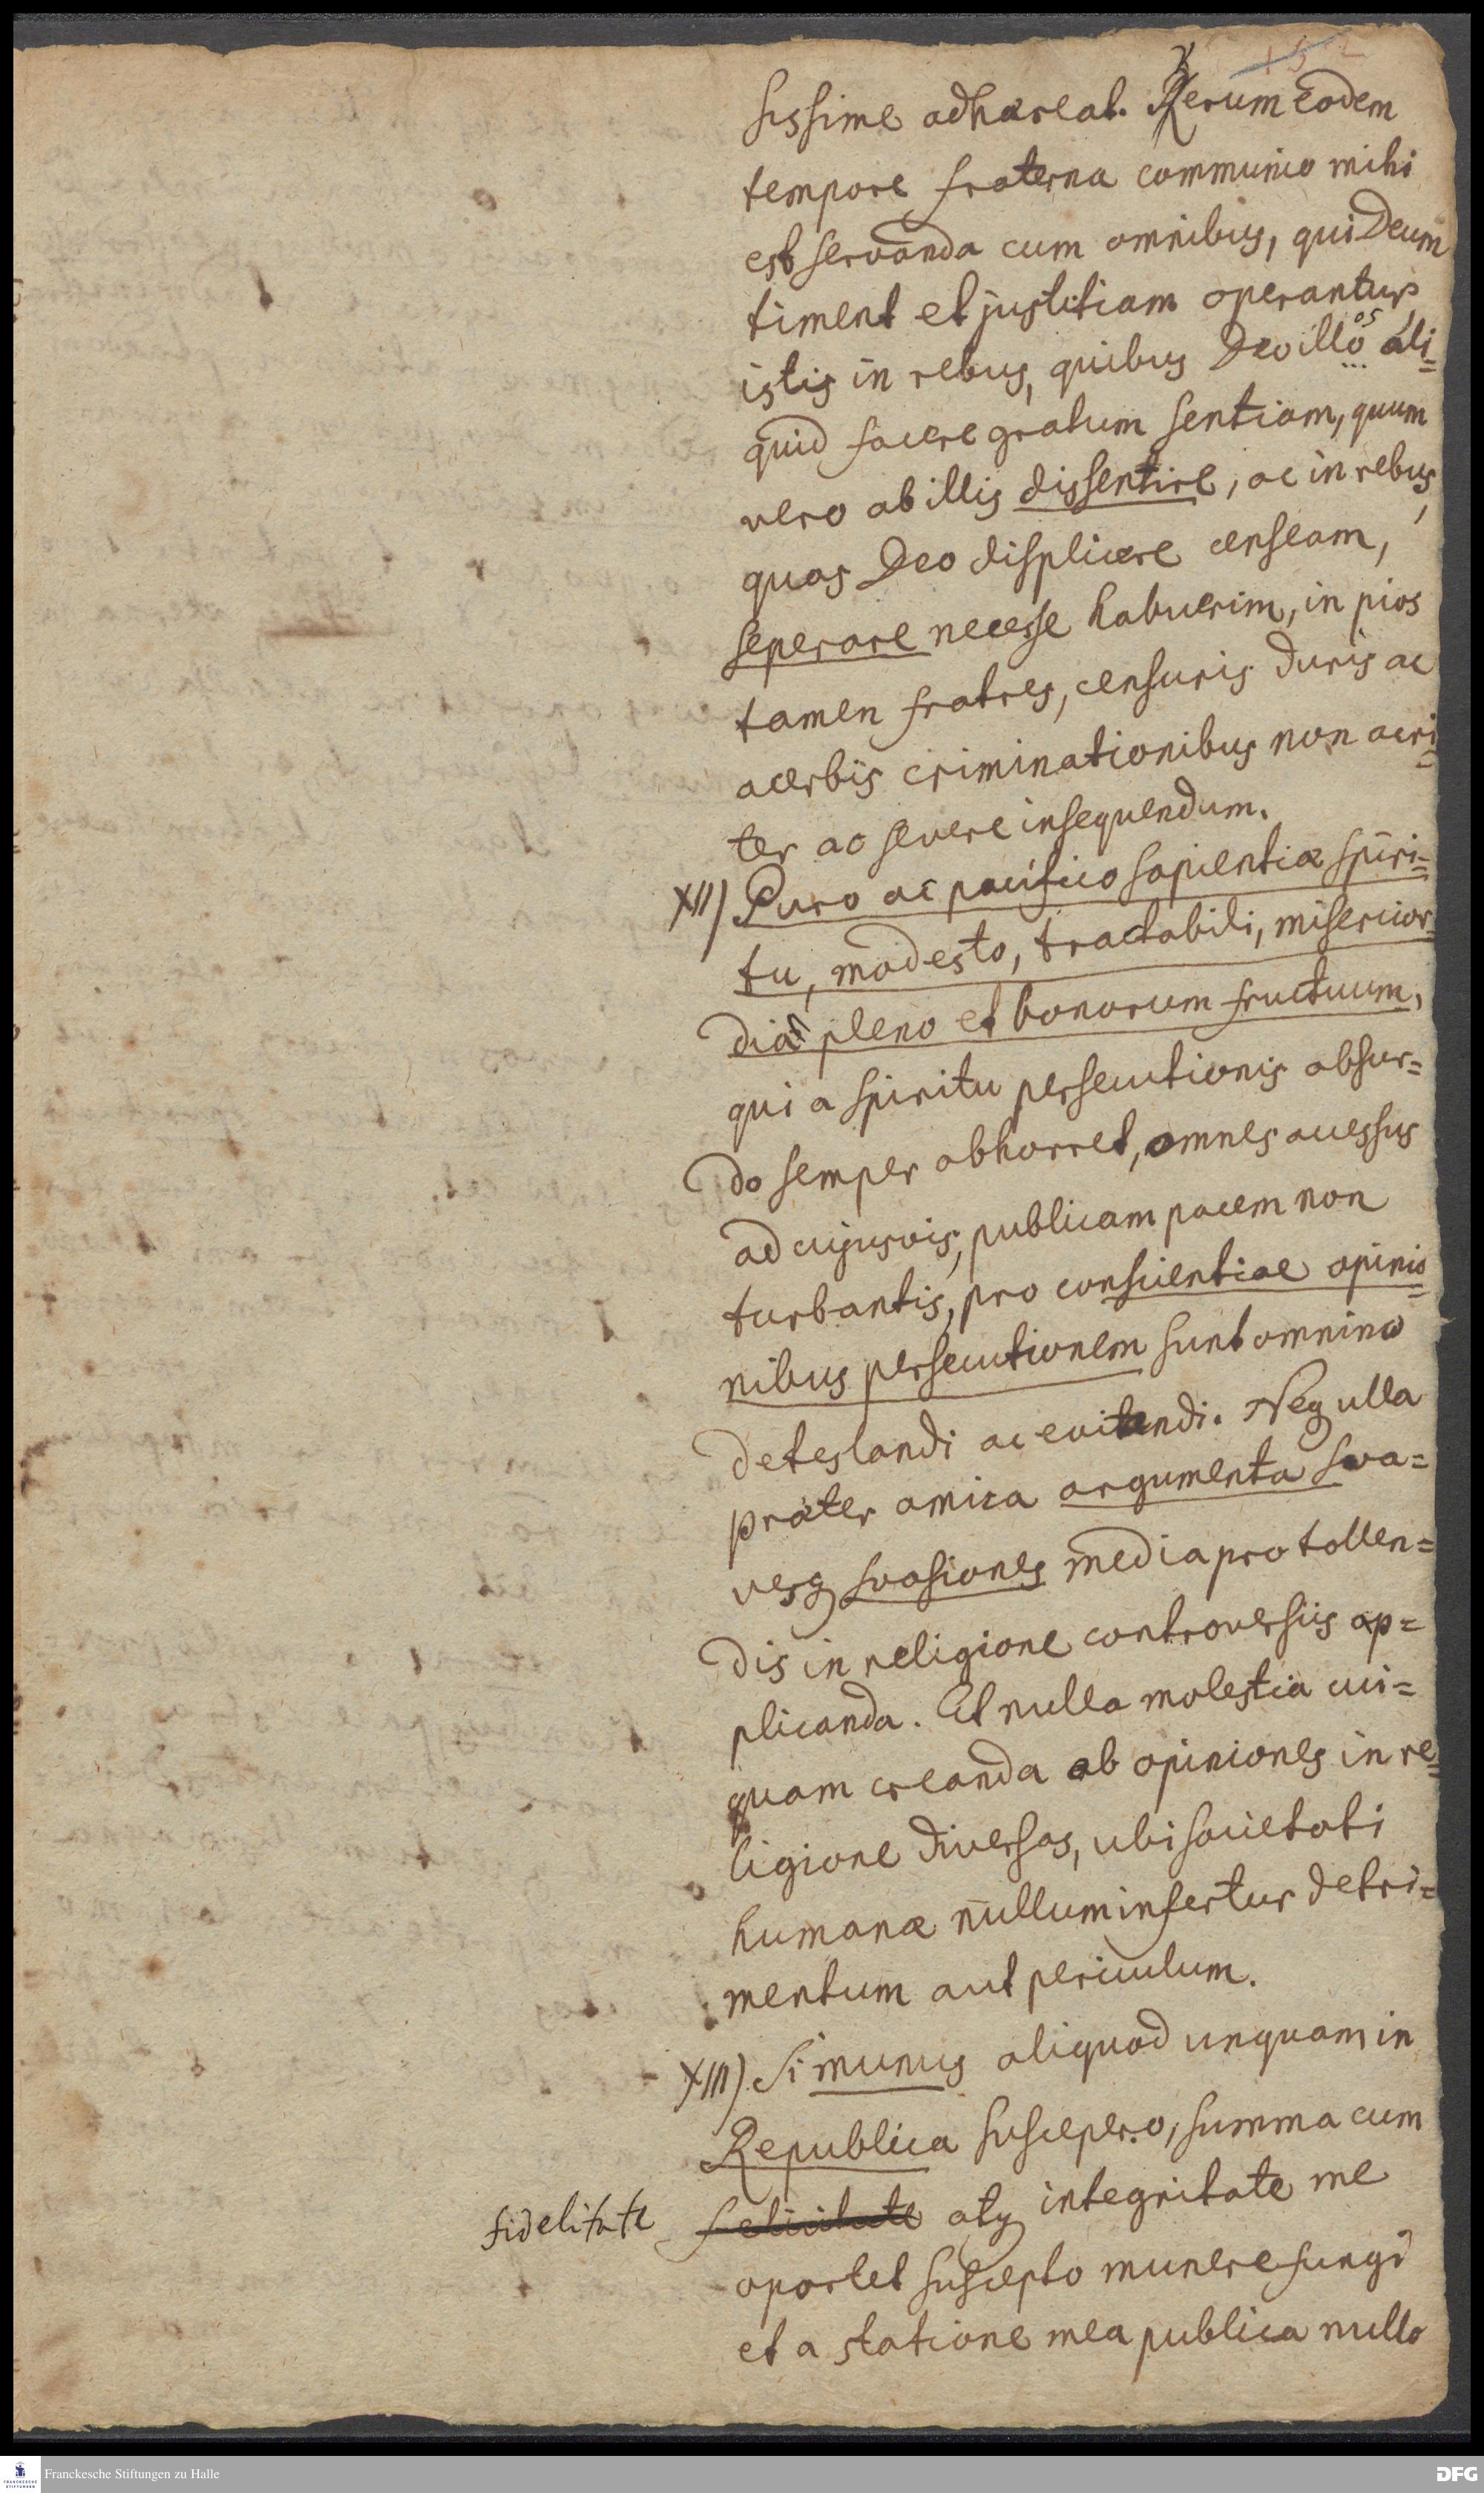 152
sissime adhæreat. Verum eodem
tempore fraterna communio mihi
est servanda cum omnibus, qui Deum
timent et justitiam operantur,
istis in rebus, quibus Deo illos ali=
quid facere gratum sentiam, quum
vero ab illis dissentire, ac in rebus,
quas Deo displicere censeam,
seperare necesse habuerim, in pios
tamen fratres, censuris duris ac
acerbis criminationibus non acri=
ter ac severe insequendum.
XII) Puro ac pacifico sapientiæ spiri=
tu, modesto, tractabili, misericor=
dia pleno et bonorum fructuum,
qui a spiritu persecutionis absur=
do semper abhorret, omnes accessus
ad cujusvis, publicam pacem non
turbantis, pro conscientiae opinio=
nibus persecutionem sunt omnino
detestandi ac evitandi. Neq ulla
præter amica argumenta sva=
vesq svasiones media pro tollen=
dis in religione controversiis ap=
plicanda. Et nulla molestia cui=
quam creanda ob opiniones in re=
ligione diversas, ubi societati
humanæ nullum infertur detri=
mentum aut periculum.
XIII) Si munus aliquod unquam in
Republica suscepero, summa cum
fidelitate felicitate atq integritate me
oportet suscepto munere fungi
et a statione mea publica nullo
FRANCKESCHE STIFTUNGEN
Franckesche Stiftungen zu Halle
DFG